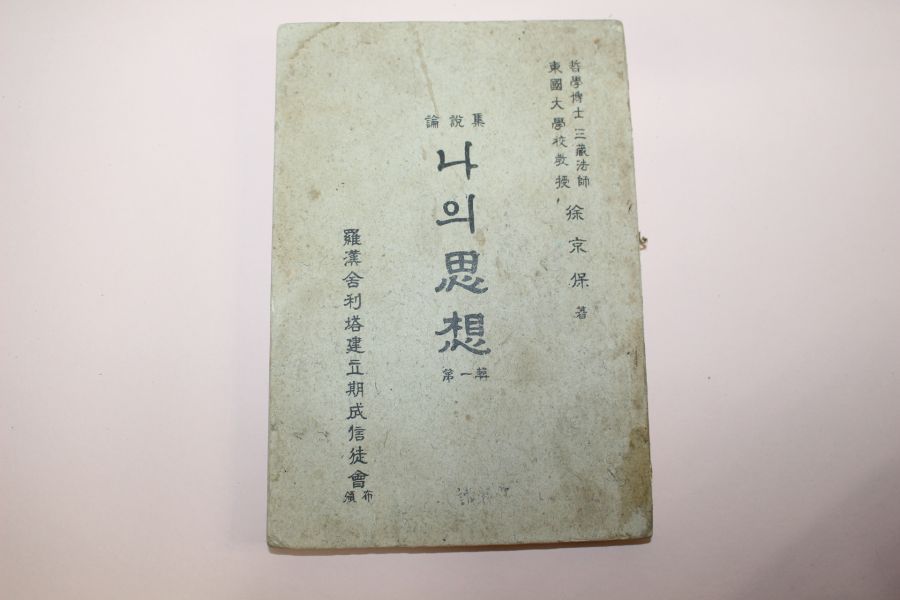 哲學博士 三藏法師
東國大學校教授
徐京保 著
論說集
나의思想
第一輯
羅漢舍利塔建立期成信徒會
頒布